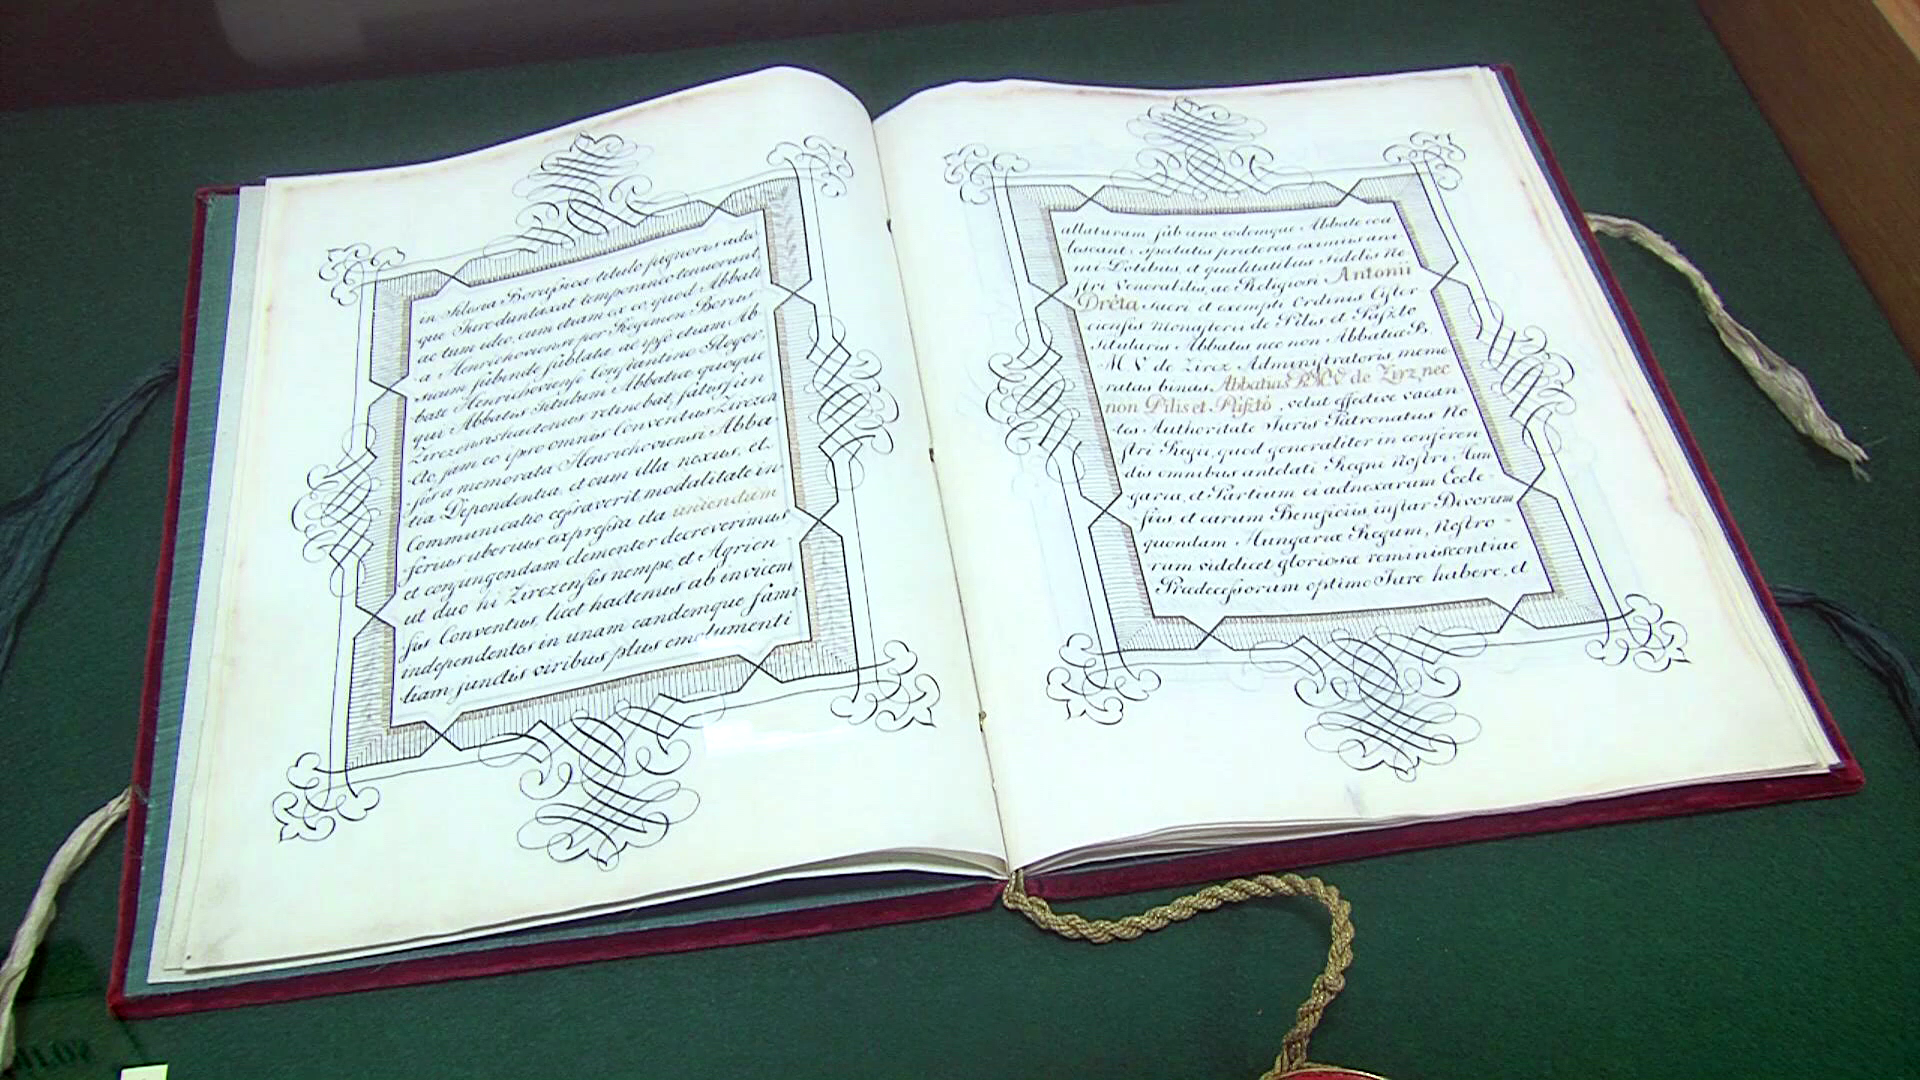 in Silesia Borussica titulo pignoris radio
que Jure duntaxat temporaneo tenuerunt
ac tum ideo, cum etiam ex eo, quod Abbati
a Henrichoviensi per Regimen Borus-
sicum subinde sublata, ac ipso etiam Ab-
bate Henrichoviense Constantino
qui Abbatis Titulum Abbatiæ quoque
Zircensis hactenus retinebat,
cto, jam eo ipso omnis Conventus Zircen
sis a memorata Henrichoviensi Abba
tia Dependentia, et cum illa nexus, et
Communicatio cessaverit modalitate in-
ferius uberius expressa ita uniendam
et conjungendam clementer decreverimus,
ut duo hi Zircenssis nempe, et Agrien
sis Conventus, licet hactenus ab invicem
independentes in unam eandemque fami
liam junctis viribus plus emolumenti
allaturam sub uno eodemque Abbate coa
lescant; spectatis præterea eximiis ani
mi Dotibus, et qualitatibus Fidelis No
stri Venerabilis, ac Religiosi Antonii
Dréta Sacri et exempti Ordinis Cister
ciensis Monasterii de Pilis et Pásztó
Titularis Abbatis nec non Abbatiæ B.
M V de Zircz Administratoris, memo
ratas binas Abbatias B.M.V de Zirz, nec
non Pilis et Pásztó, velut effective vacan
tes Authoritate Juris Patronatus No
stri Regii, quod generaliter in conferen
dis omnibus antelati Regni Nostri Hun
gariæ, et Partium ei adnexarum Eccle-
siis, et earum Beneficiis, instar Divorum
quondam Hungariæ Regum, Nostro-
rum videlicet gloriosæ reminiscentiae
Prædecessorum optimo Jure habere, et